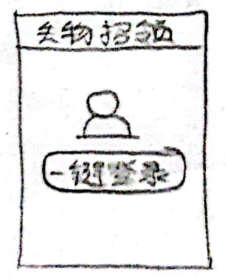 失物招领
一键登录